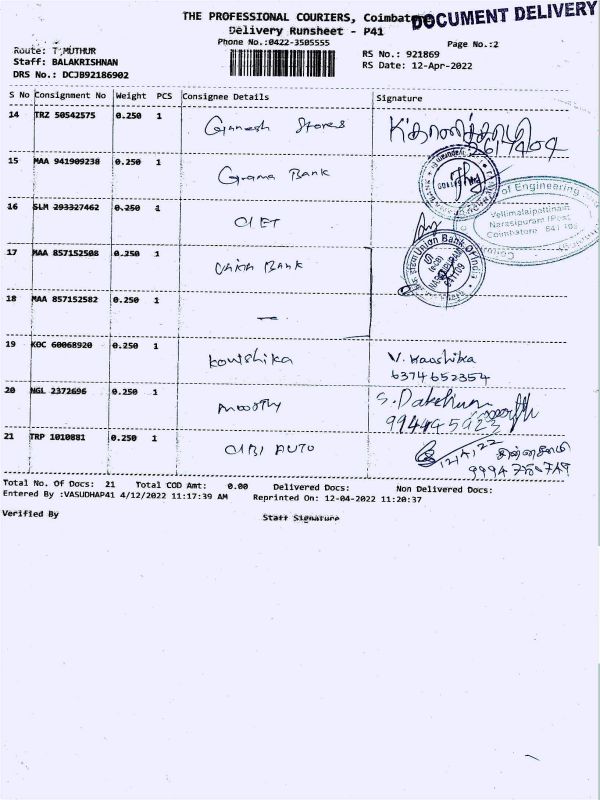 THE PROFESSIONAL COURIERS, Coimbatore
DOCUMENT DELIVERY
Delivery Runsheet - P41
Phone No.:0422-3505555
Page No.:2
Route: T MUTHUR
RS No.: 921869
Staff: BALAKRISHNAN
RS Date: 12-Apr-2022
DRS No.: DCJB92186902
S No Consignment No Weight PCS Consignee Details Signature
14 TRZ 50542575 0.250 1 Ganesh Stores
15 MAA 941909238 0.250 1 Grama Bank
16 SLM 293327462 0.250 1 CIET
of Engineering
Vellimalaipattinam
Narasipuram (Post)
Coimbatore 641 109
17 MAA 857152508 0.250 1 Bank
Union Bank Of India
18 MAA 857152582 0.250 1 —
19 KOC 60068920 0.250 1 Kowshika V. Kaoshika
6374652354
20 NGL 2372696 0.250 1 moorthy
21 TRP 1010881 0.250 1 CIBI AUTO
Total No. Of Docs: 21 Total COD Amt: 0.00 Delivered Docs: Non Delivered Docs:
Entered By :VASUDHAP41 4/12/2022 11:17:39 AM Reprinted On: 12-04-2022 11:20:37
Verified By Staff Signature